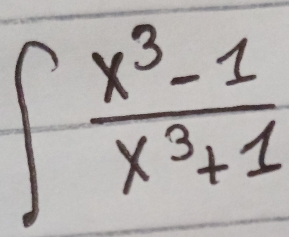 ∫ x³ - 1 / x³ + 1